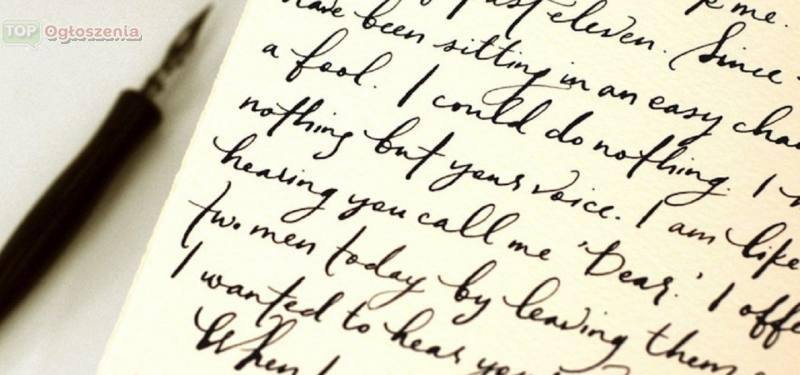 TOP Ogłoszenia
me.
past eleven. Since
have been sitting in an easy
a fool. I could do nothing. I
nothing but your voice. I am like
hearing you call me 'Dear.' I
two men today by leaving them
I wanted to hear
When I